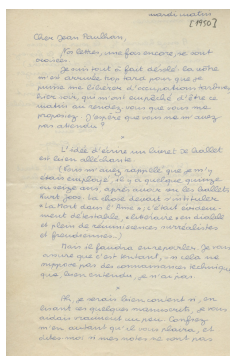 mardi matin
[1950]
Cher Jean Paulhan,
Nos lettres, une fois encore, se sont
croisées.
Je suis tout à fait désolé. La vôtre
m'est arrivée trop tard pour que je
puisse me libérer d'occupations
hier soir, qui m'ont empêché d'être ce
matin au rendez-vous que vous me
proposiez. J'espère que vous ne m'avez
pas attendu.
*
L'idée d'écrire un livret de ballet
est bien alléchante.
(Vous m'avez rappelé que je m'y
étais employé, il y a quelque quinze
ou seize ans, après avoir vu les ballets
Kurt Jooss. La chose devait s'intituler
« La Mort dans l'Âme »; c'était
détestable, « littéraire » en diable
et plein de réminiscences surréalistes
et freudiennes.)
Mais il faudra en reparler. Je vous
assure que c'est tentant, si cela ne
suppose pas des connaissances techniques
que, bien entendu, je n'ai pas.
*
Ah, je serais bien content si, en
lisant ces quelques manuscrits, je vous
aidais vraiment un peu. Confiez-
m'en autant qu'il vous plaira, et
dites-moi si mes notes ne sont pas